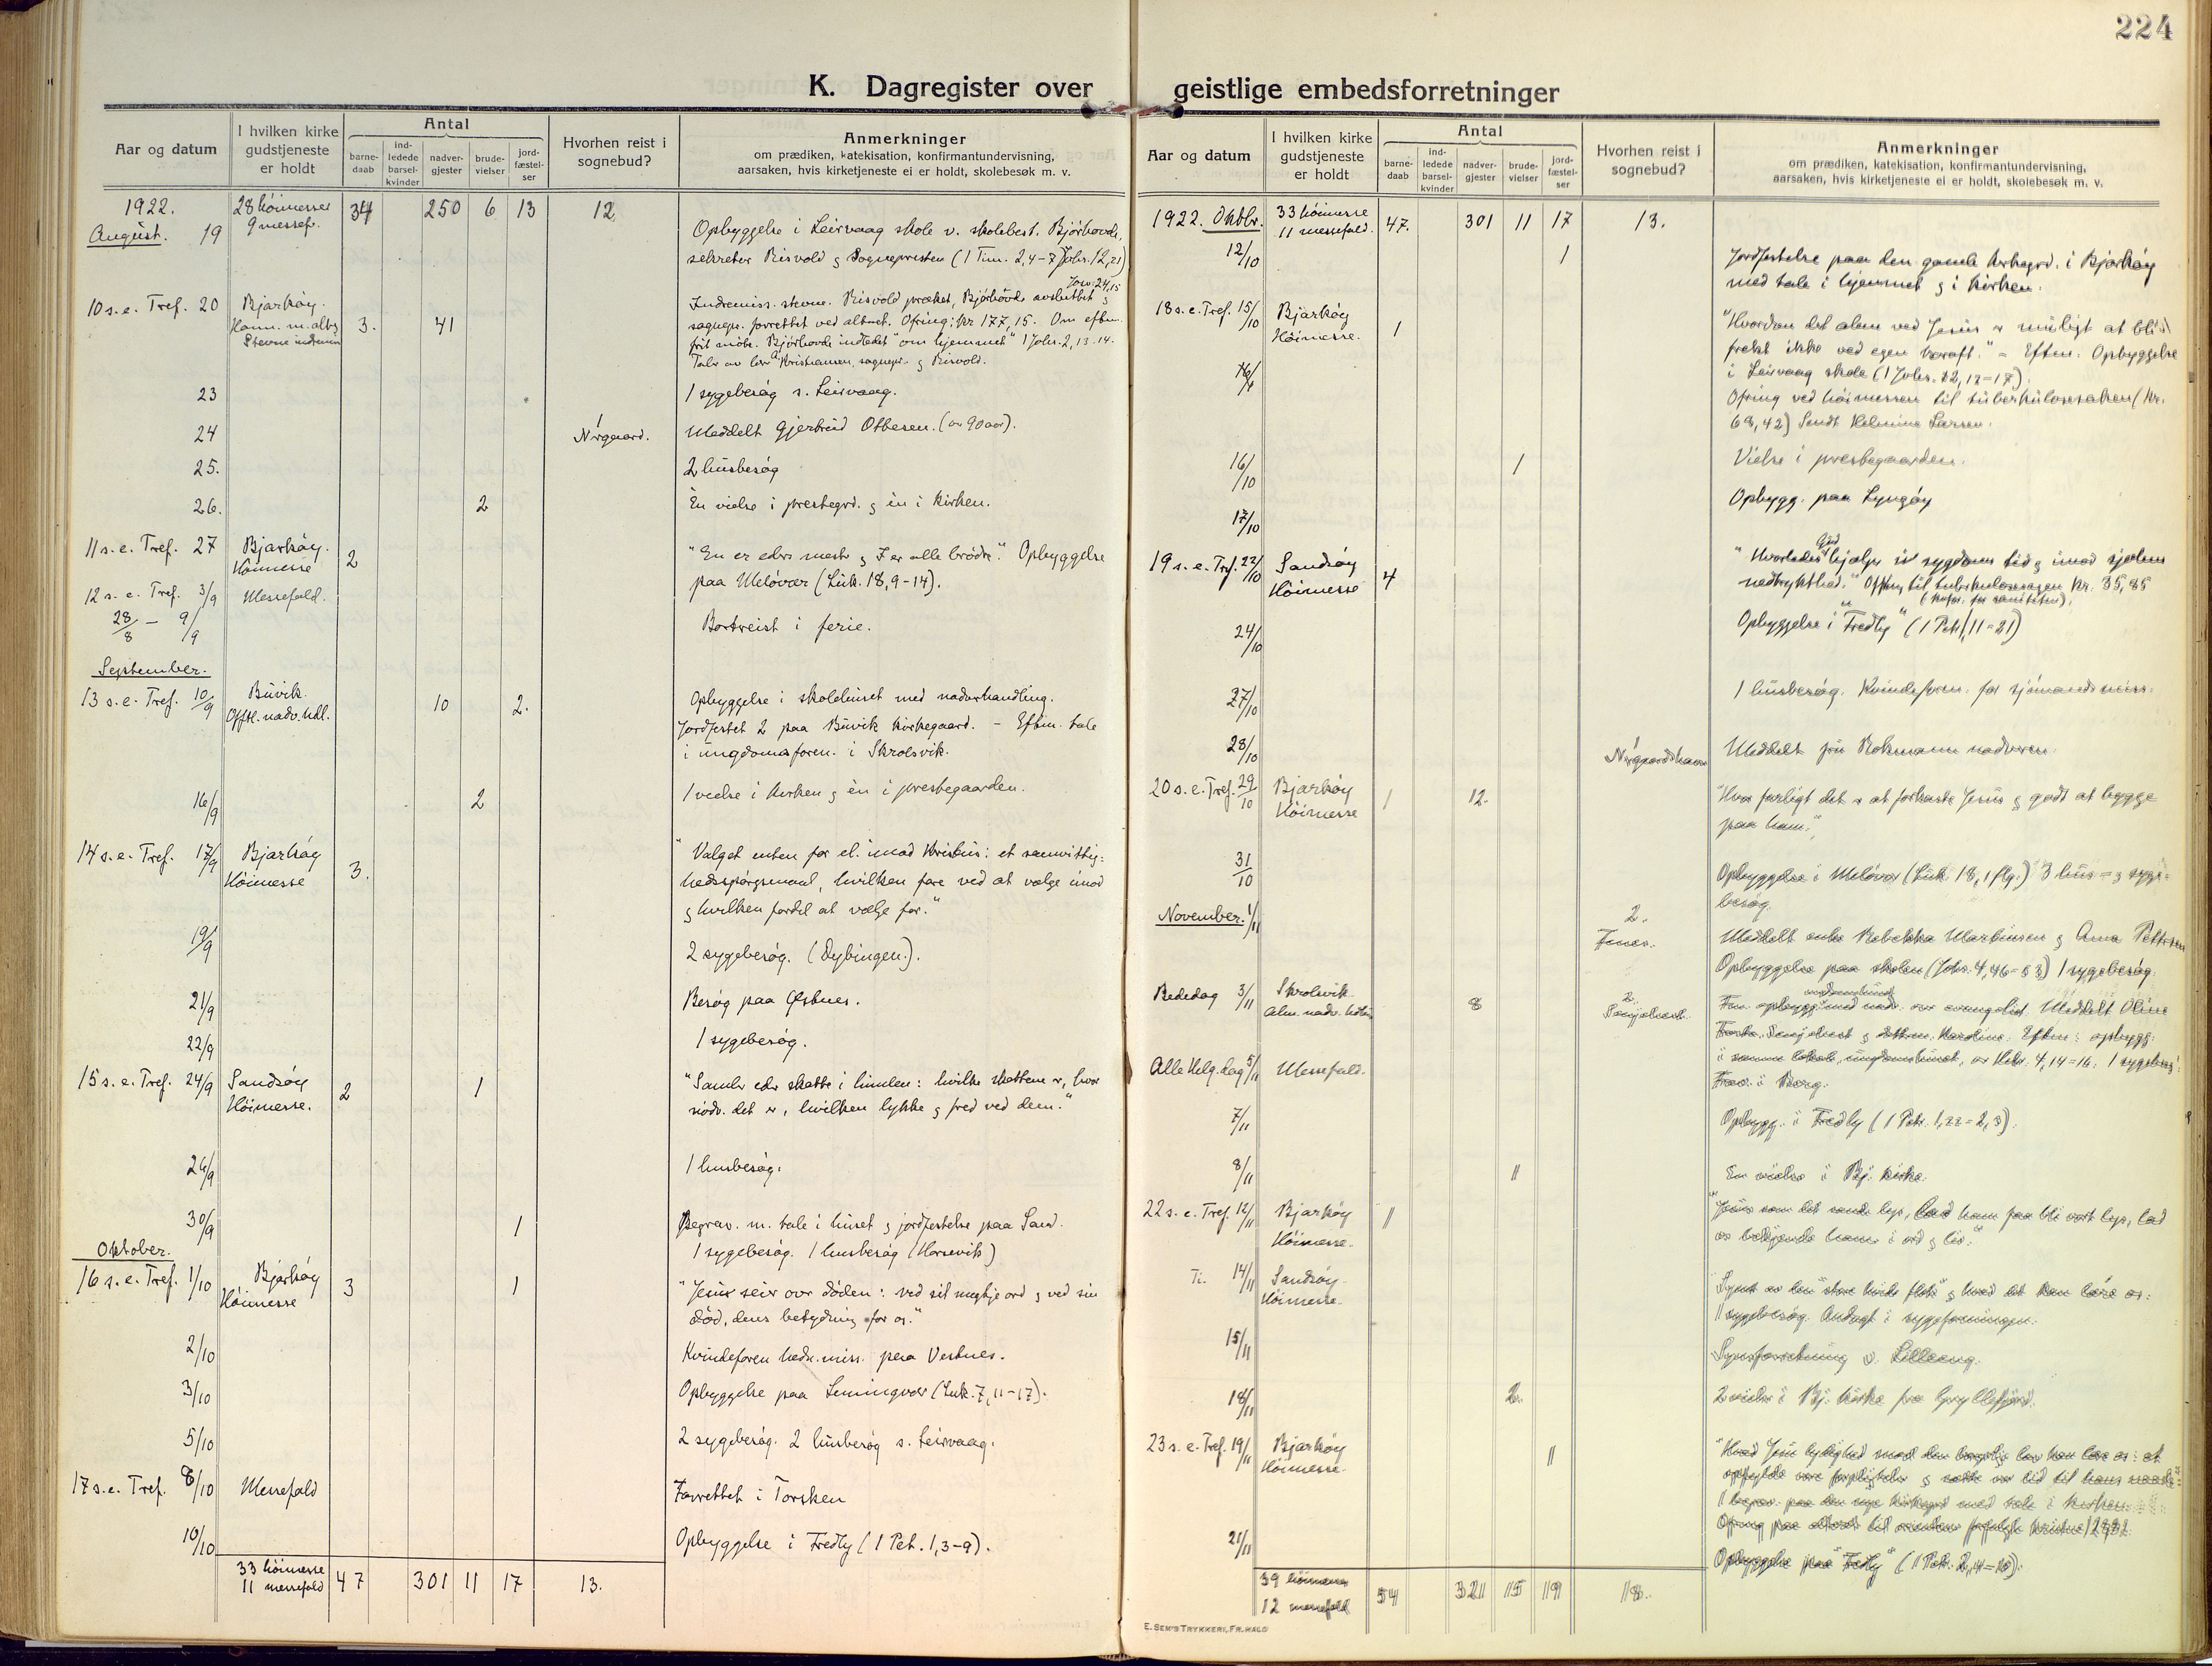 224
K. Dagregister over
Aar og datum
I hvilken kirke
gudstjeneste
er holdt
Antal
barne-
daab
ind-
ledede
barsel-
kvinder
nadver-
gjester
brude-
vielser
jord-
fæstel-
ser
Hvorhen reist i
sognebud?
Anmerkninger
om prædiken, katekisation, konfirmantundervisning,
aarsaken, hvis kirketjeneste ei er holdt, skolebesøk m. v.
1922. 28 höimesser 34 250 6 13 12
August. 19 9 messef. Opbyggelse i Leirvaag skole v. skolebest. Bjórhovde,
sekretær Risvold & Sognepresten (1 Tim. 2,4-7 Johs. 12,21)
Jos. 24,15
10 s. e. Tref. 20 Bjarkøy. 3. 41 Indremiss. stevne. Risvold præket, Bjórhovde avsluttet &
sognepr. forrettet ved alteret. Ofring: kr 177,15. Om eftm.
frit möte. Bjórhovde indledet "om hjemmet" 1 Johs. 2,13-14.
Taler av Kristiansen, sognepr. & Risvold.
23 1 sygebesøg s. Leirvaag.
24 1 Nergaard. Meddelt Gjertrud Ottesen. (ov. 90 aar).
25. 2 husbesøg
26. 2 En vielse i prestegrd. & èn i kirken.
11 s. e. Tref. 27 Bjarkøy. Höimesse 2 "En er eders mester & I er alle brødre." Opbyggelse
paa Meløvær (Luk. 18,9-14).
12 s. e. Tref. 3/9 Messefald.
28/8 - 9/9 Bortreist i ferie.
September.
13 s. e. Tref. 10/9 Buvik. Offtl. nadv. hdl. 10 2. Opbyggelse i skolehuset med nadverhandling.
Jordfestet 2 paa Buvik kirkegaard. - Eftm. tale
i ungdomsforen. i Skrolsvik.
16/9 2 1 vielse i kirken & èn i prestegaarden.
14 s. e. Tref. 17/9 Bjarkøy Höimesse 3. "Valget enten for el. imod Kristus: et samvittig-
hedsspørgsmaal, hvilken fare ved at vælge imod
& hvilken fordel at vælge for."
19/9 2 sygebesøg. (Dybingen.).
21/9 Besøg paa Østnes.
22/9 1 sygebesøg.
15 s. e. Tref. 24/9 Sandsøy Höimesse. 2 1 "Samler eder skatte i himlen: hvilke skattene er, hvor
nødv. det er, hvilken lykke & fred ved dem."
26/9 1 husbesøg.
30/9 1 Begrav. m. tale i huset & jordfestelse paa Sand.
1 sygebesøg. 1 husbesøg (Horsevik)
Oktober.
16 s. e. Tref. 1/10 Bjarkøy Höimesse 3 1 "Jesus seir over døden: ved sit mægtige ord & ved sin
død, dens betydning for os."
2/10 Kvindeforen. hedn. miss. paa Vestnes.
3/10 Opbyggelse paa Lemingvær (Luk. 7,11-17).
5/10 2 sygebesøg. 2 husbesøg s. Leirvaag.
17 s. e. Tref. 8/10 Messefald Forrettet i Torsken
10/10 Opbyggelse i Fredly (1 Pet. 1,3-9).
33 höimesse
11 messefald 47 301 11 17 13.
geistlige embedsforretninger
Aar og datum
I hvilken kirke
gudstjeneste
er holdt
Antal
barne-
daab
ind-
ledede
barsel-
kvinder
nadver-
gjester
brude-
vielser
jord-
fæstel-
ser
Hvorhen reist i
sognebud?
Anmerkninger
om prædiken, katekisation, konfirmantundervisning,
aarsaken, hvis kirketjeneste ei er holdt, skolebesøk m. v.
1922. Oktbr. 33 höimesse 11 messefald. 47. 301 11 17 13.
12/10 1 Jordfestelse paa den gamle kirkegrd. i Bjarkøy
med tale i hjemmet & i kirken.
18 s. e. Tref. 15/10 Bjarkøy Höimesse. 1 "Hvordan det alene ved Jesus er muligt at bli
frelst ikke ved egen kraft." - Eftm. Opbyggelse
i Leirvaag skole (1 Johs. 2,12-17).
Ofring ved höimessen til tuberkulosesaken (kr.
68,42) Sendt Helmine Larsen.
16/10 1 Vielse i prestegaarden.
17/10 Opbygg. paa Lyngøy
19 s. e. Tref. 22/10 Sandsøy Höimesse 4 "Hvorledes Gud hjælper i sygdoms tid & imod sjælens
nedtrykthed." Offring til tuberkulosesagen kr. 35,85
24/10 Opbyggelse i "Fredly" (1 Pet. 1,11-21)
27/10 1 husbesøg. Kvindeforen. for sjömandsmiss.
28/10 1 Meddelt fru Rokmann nadveren.
20 s. e. Tref. 29/10 Bjarkøy Höimesse 1 12. "Hvor farligt det er at forkaste Jesus & godt at bygge
paa ham."
31/10 Opbyggelse i Meløvær (Luk. 18,1 flg.) 3 hus- & syge-
besøg.
November. 1/11 2. Meddelt enke Rebekka Martinsen & Anna Pettersen
Opbyggelse paa skolen (Johs. 4,46-53) 1 sygebesøg.
Bededag 3/11 Skrolsvik 8 2
Alle Helg. dag 5/11 Messefald.
7/11 Opbygg. i Fredly (1 Pet. 1,22-2,3).
8/11 1 En vielse i Bj. kirke.
22 s. e. Tref. 12/11 Bjarkøy Höimesse. 1 "Jesus som det sande lys, lad ham faa bli vort lys, lad
os bekjende ham i ord & liv."
Ti. 14/11 Sandsøy Höimesse. Synet av den store hvide flok & hvad det kan lære os:
1 sygebesøg. Andagt i sygeforeningen.
15/11 Synsforretning v. Lilleeng.
18/11 2. 2 vielser i Bj. kirke fra Gryllefjord.
23 s. e. Tref. 19/11 Bjarkøy Höimesse. 1 "Hvad Jesu lydighed mod den borgerlige lov kan lære os: at
opfylde vore forpligtelser & sætte vor lid til hans naade."
1 begrav. paa den nye kirkegrd med tale i kirken.
21/11 Opbyggelse paa "Fredly" (1 Pet. 2,
39 höimesse
12 messefald 54 321 15 19 18.
E. SEM'S TRYKKERI, FR.HALD